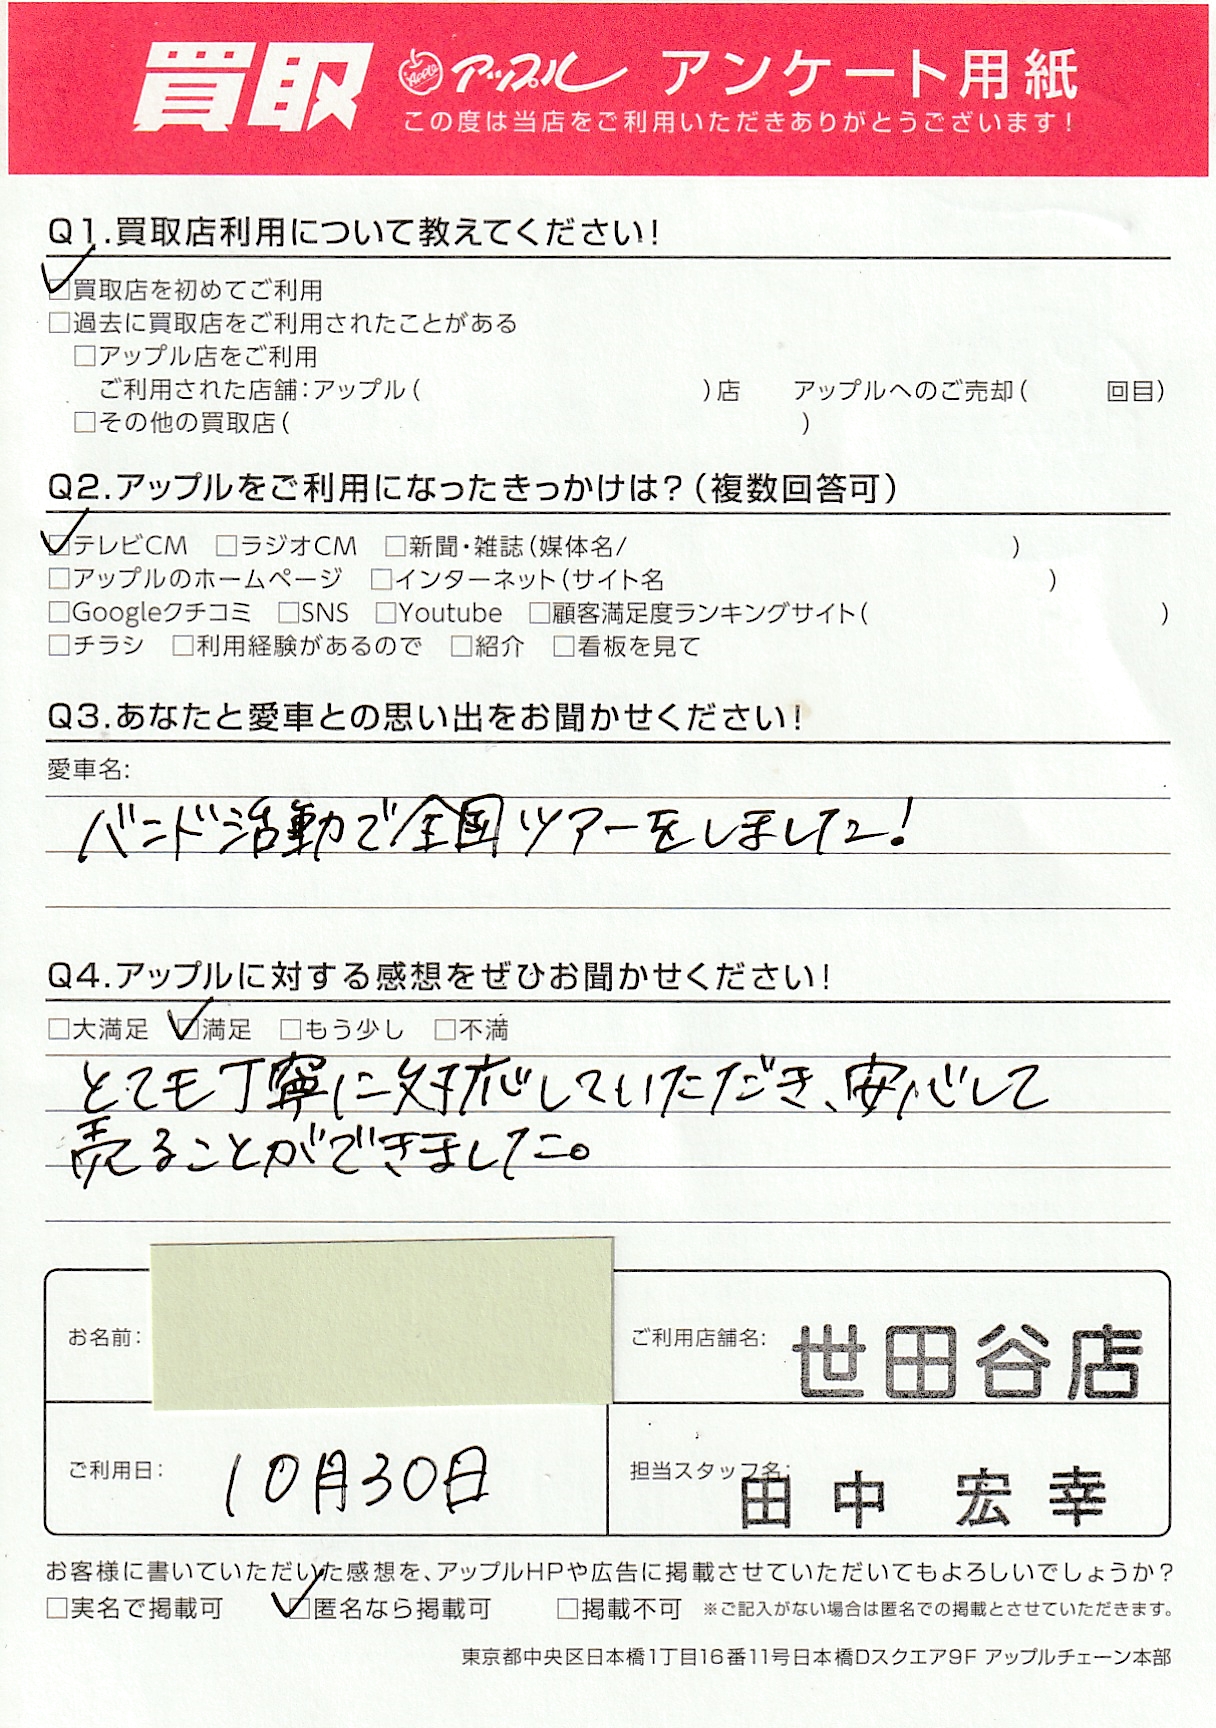 買取 Apple アップル アンケート用紙
この度は当店をご利用いただきありがとうございます!
Q1.買取店利用について教えてください!
☑買取店を初めてご利用
□過去に買取店をご利用されたことがある
□アップル店をご利用
ご利用された店舗:アップル( )店 アップルへのご売却( 回目)
□その他の買取店( )
Q2.アップルをご利用になったきっかけは?(複数回答可)
☑テレビCM □ラジオCM □新聞・雑誌(媒体名/ )
□アップルのホームページ □インターネット(サイト名 )
□Googleクチコミ □SNS □Youtube □顧客満足度ランキングサイト( )
□チラシ □利用経験があるので □紹介 □看板を見て
Q3.あなたと愛車との思い出をお聞かせください!
愛車名:
バンド活動で全国ツアーをしました!
Q4.アップルに対する感想をぜひお聞かせください!
□大満足 ☑満足 □もう少し □不満
とても丁寧に対応していただき、安心して
売ることができました。
お名前: ご利用店舗名: 世田谷店
ご利用日: 10月30日 担当スタッフ名: 田中 宏幸
お客様に書いていただいた感想を、アップルHPや広告に掲載させていただいてもよろしいでしょうか?
□実名で掲載可 ☑匿名なら掲載可 □掲載不可 ※ご記入がない場合は匿名での掲載とさせていただきます。
東京都中央区日本橋1丁目16番11号日本橋Dスクエア9F アップルチェーン本部